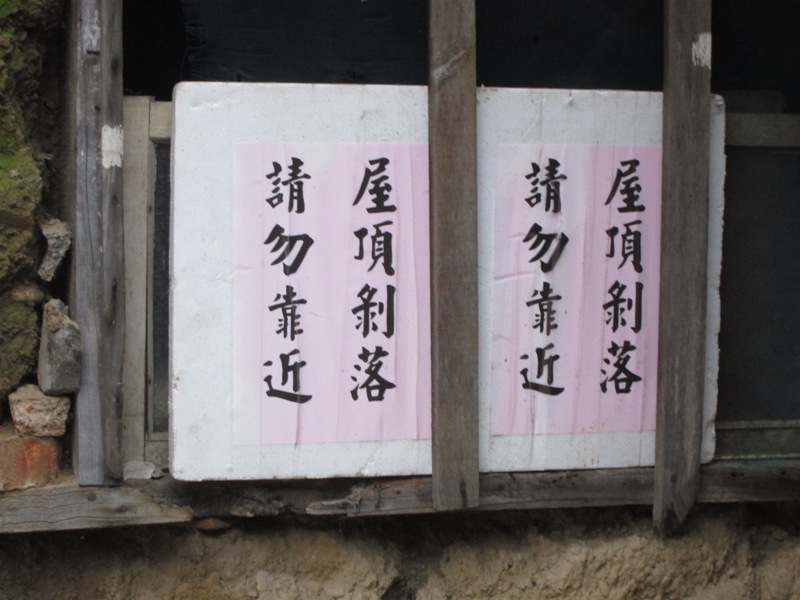 屋頂剝落
請勿靠近
屋頂剝落
請勿靠近